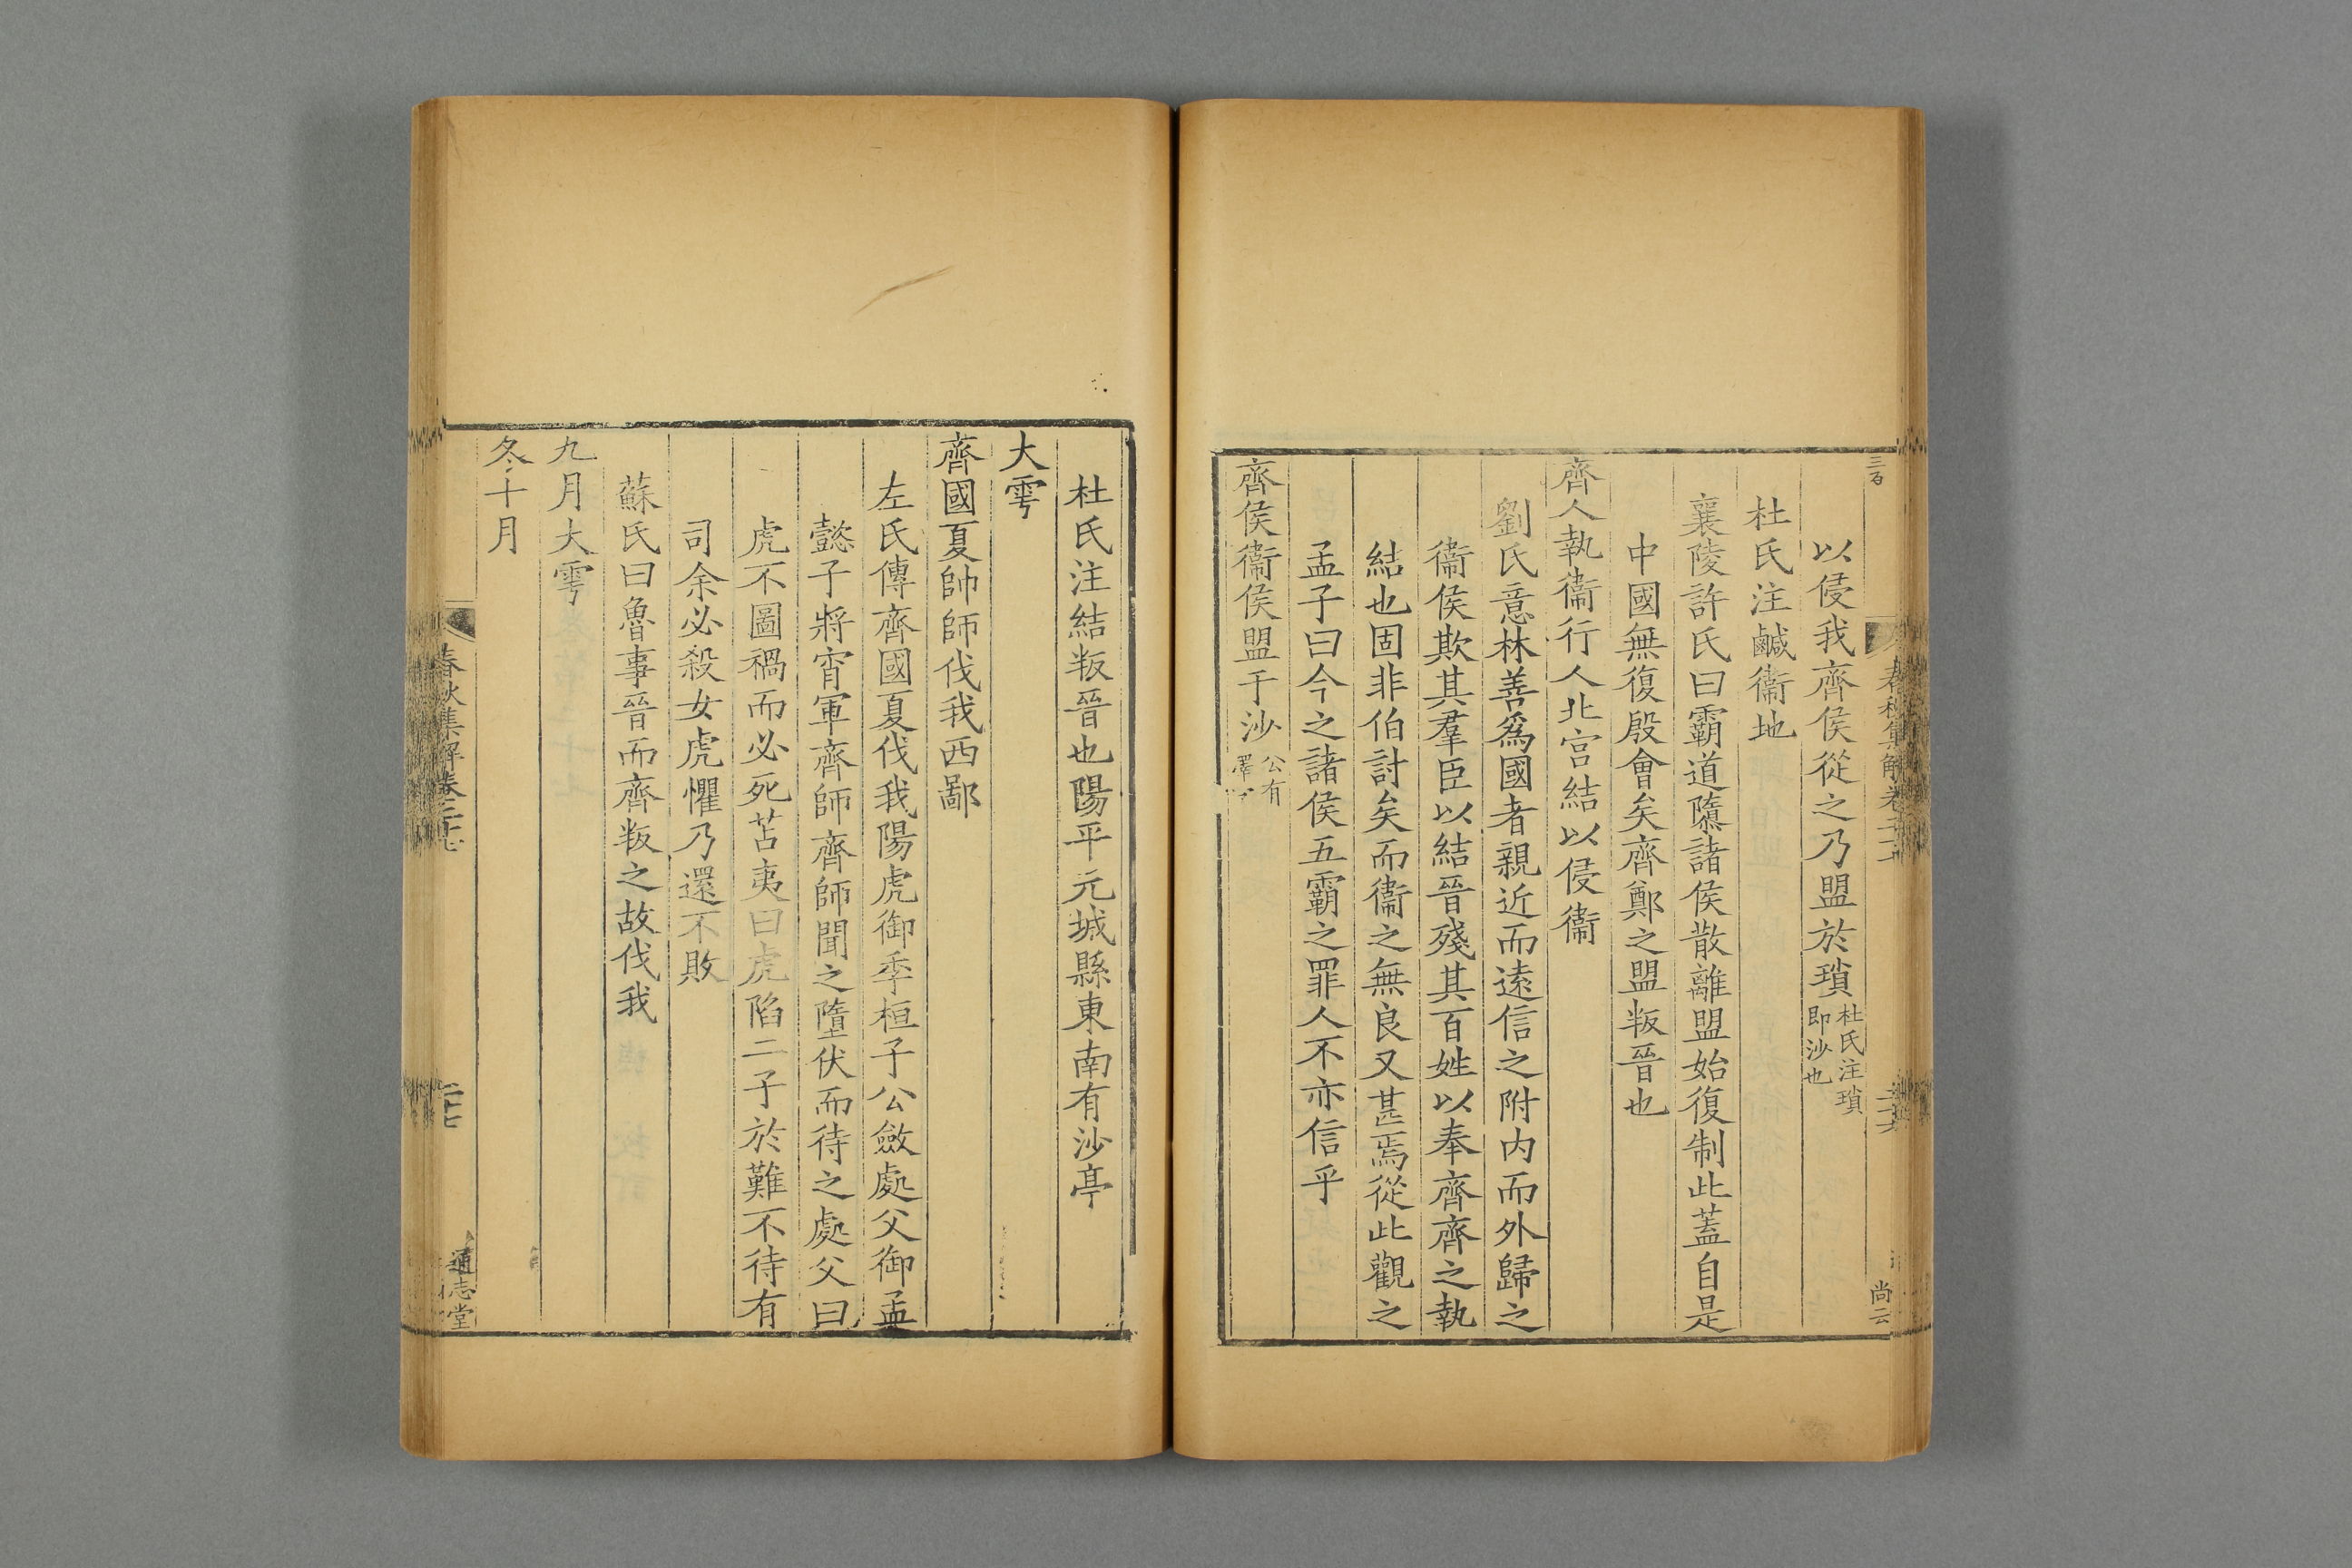 以侵我齊侯從之乃盟於瑣杜氏注瑣即沙也
杜氏注鹹衞地
襄陵許氏曰霸道隳諸侯散離盟始復制此蓋自是
中國無復殷會矣齊鄭之盟叛晉也
齊人執衞行人北宫結以侵衞
劉氏意林善爲國者親近而遠信之附内而外歸之
衞侯欺其羣臣以結晉殘其百姓以奉齊齊之執
結也固非伯討矣而衞之無良又甚焉從此觀之
孟子曰今之諸侯五霸之罪人不亦信乎
齊侯衞侯盟于沙公有澤字
杜氏注結叛晉也陽平元城縣東南有沙亭
大雩
齊國夏帥師伐我西鄙
左氏傳齊國夏伐我陽虎御季桓子公斂處父御孟
懿子將宵軍齊師齊師聞之墮伏而待之處父曰
虎不圖禍而必死苫夷曰虎陷二子於難不待有
司余必殺女虎懼乃還不敗
蘇氏曰魯事晉而齊叛之故伐我
九月大雩
冬十月
春秋集解卷二十七
二十七
通志堂